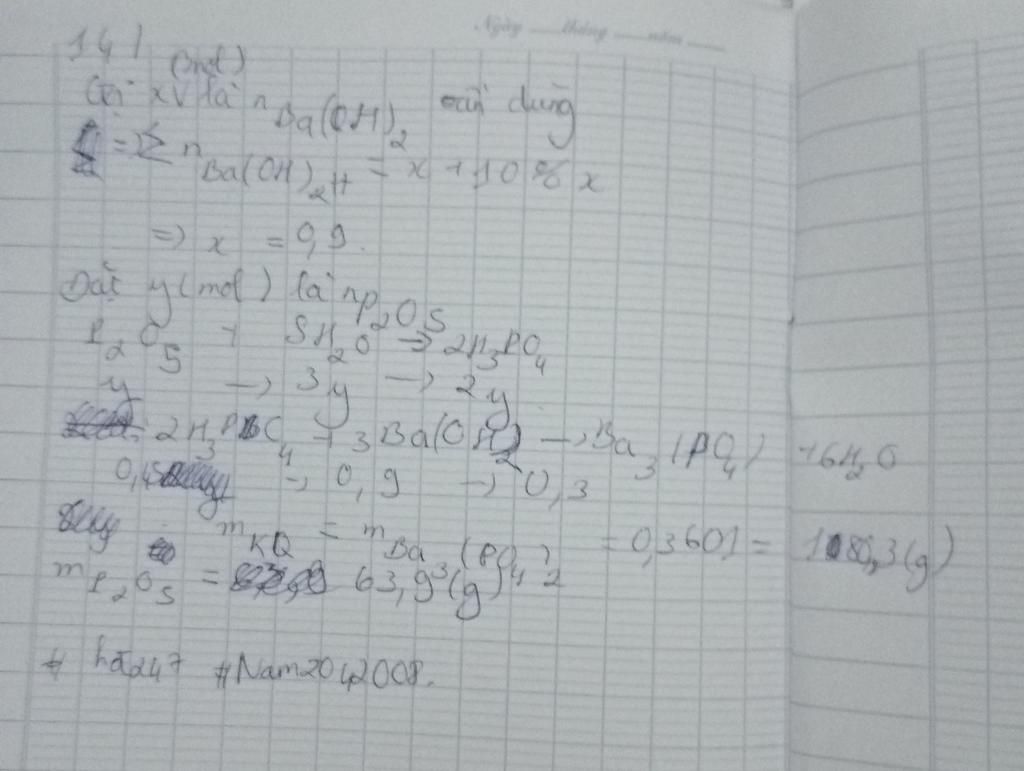 Ngày tháng năm
141
(mol)
Gọi x là n Ba(OH)2 cần dùng
= Σ n Ba(OH)2 = x + 10% x
=> x = 0,9.
Đặt y(mol) là nP2O5
P2O5 + 3H2O → 2H3PO4
y → 3y → 2y
2H3PO4 + 3Ba(OH)2 → Ba3(PO4) + 6H2O
→ 0,9 → 0,3
mKQ = mBa3(PO4)2 = 0,3601 = (g)
mP2O5 = 63,9 (g)
# hóa247 #Nam2042008.